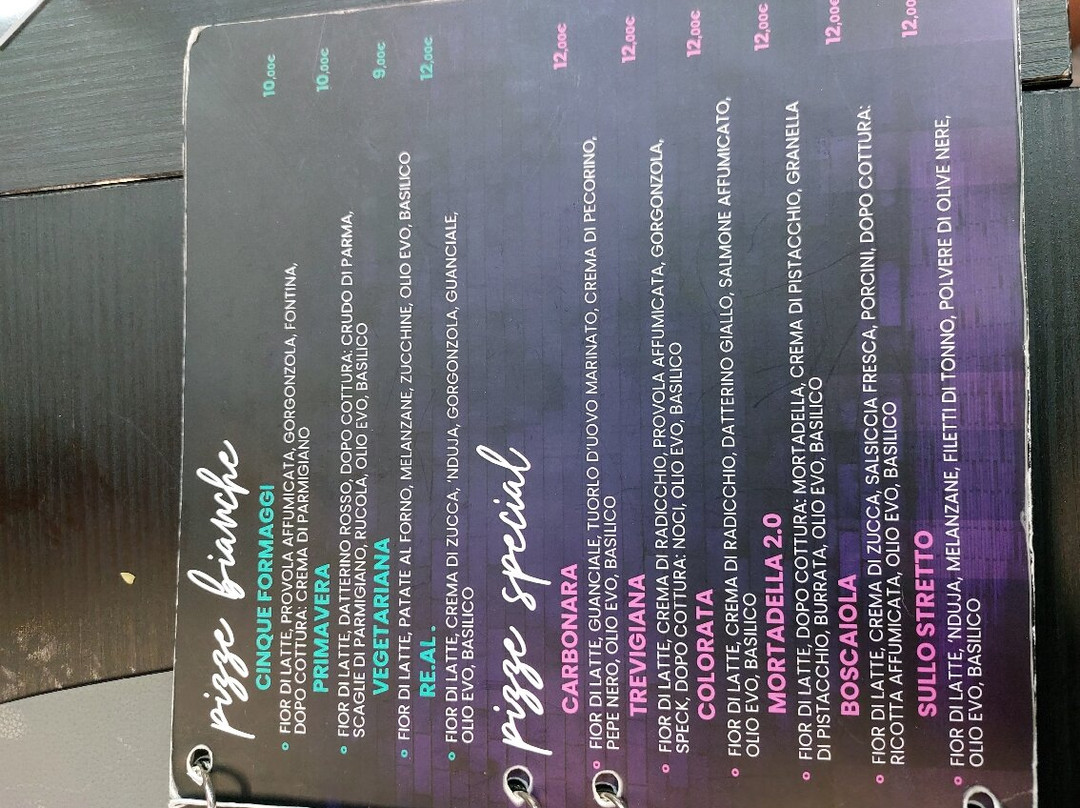 pizze bianche
CINQUE FORMAGGI 10,00€
FIOR DI LATTE, PROVOLA AFFUMICATA, GORGONZOLA, FONTINA,
DOPO COTTURA: CREMA DI PARMIGIANO
PRIMAVERA 10,00€
FIOR DI LATTE, DATTERINO ROSSO, DOPO COTTURA: CRUDO DI PARMA,
SCAGLIE DI PARMIGIANO, RUCOLA, OLIO EVO, BASILICO
VEGETARIANA 9,00€
FIOR DI LATTE, PATATE AL FORNO, MELANZANE, ZUCCHINE, OLIO EVO, BASILICO
RE.AL. 12,00€
FIOR DI LATTE, CREMA DI ZUCCA, 'NDUJA, GORGONZOLA, GUANCIALE,
OLIO EVO, BASILICO
pizze special
CARBONARA 12,00€
FIOR DI LATTE, GUANCIALE, TUORLO D'UOVO MARINATO, CREMA DI PECORINO,
PEPE NERO, OLIO EVO, BASILICO
TREVIGIANA 12,00€
FIOR DI LATTE, CREMA DI RADICCHIO, PROVOLA AFFUMICATA, GORGONZOLA,
SPECK, DOPO COTTURA: NOCI, OLIO EVO, BASILICO
COLORATA 12,00€
FIOR DI LATTE, CREMA DI RADICCHIO, DATTERINO GIALLO, SALMONE AFFUMICATO,
OLIO EVO, BASILICO
MORTADELLA 2.0 12,00€
FIOR DI LATTE, DOPO COTTURA: MORTADELLA, CREMA DI PISTACCHIO, GRANELLA
DI PISTACCHIO, BURRATA, OLIO EVO, BASILICO
BOSCAIOLA 12,00€
FIOR DI LATTE, CREMA DI ZUCCA, SALSICCIA FRESCA, PORCINI, DOPO COTTURA:
RICOTTA AFFUMICATA, OLIO EVO, BASILICO
SULLO STRETTO 12,00
FIOR DI LATTE, 'NDUJA, MELANZANE, FILETTI DI TONNO, POLVERE DI OLIVE NERE,
OLIO EVO, BASILICO